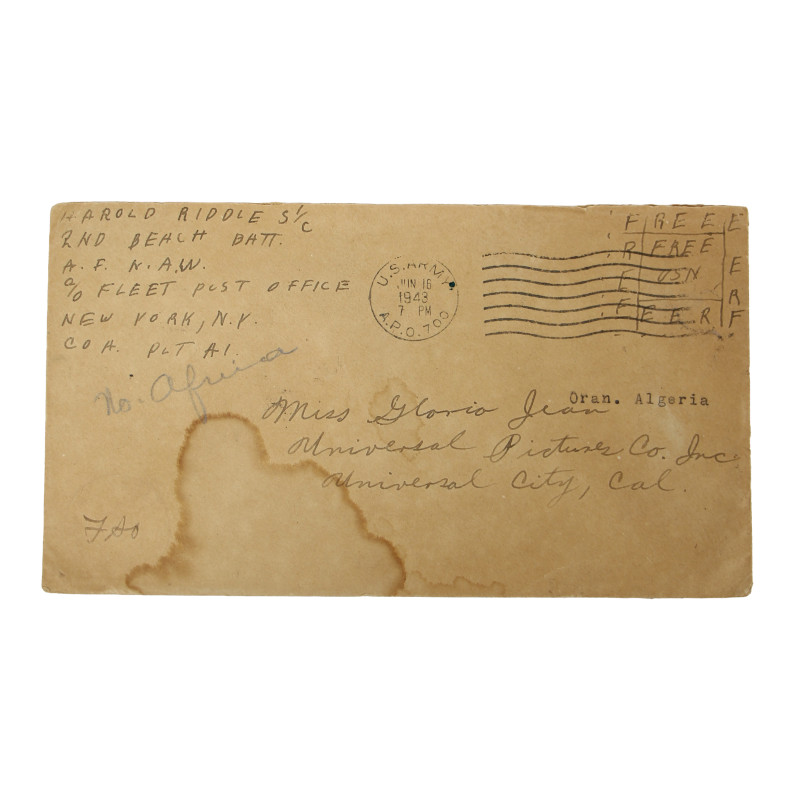 HAROLD RIDDLE S 1/C
2ND BEACH BATT.
A. F. N. A. W.
c/o FLEET POST OFFICE
NEW YORK, N.Y.
CO A. PLT A1.
No. Africa
U.S. ARMY.
JUN 16
1943
7 PM
A.P.O. 700
F R E E E
R FREE
E USN E
F E E R F
R
Oran. Algeria
Miss Gloria Jean
Universal Pictures Co. Inc.
Universal City, Cal.